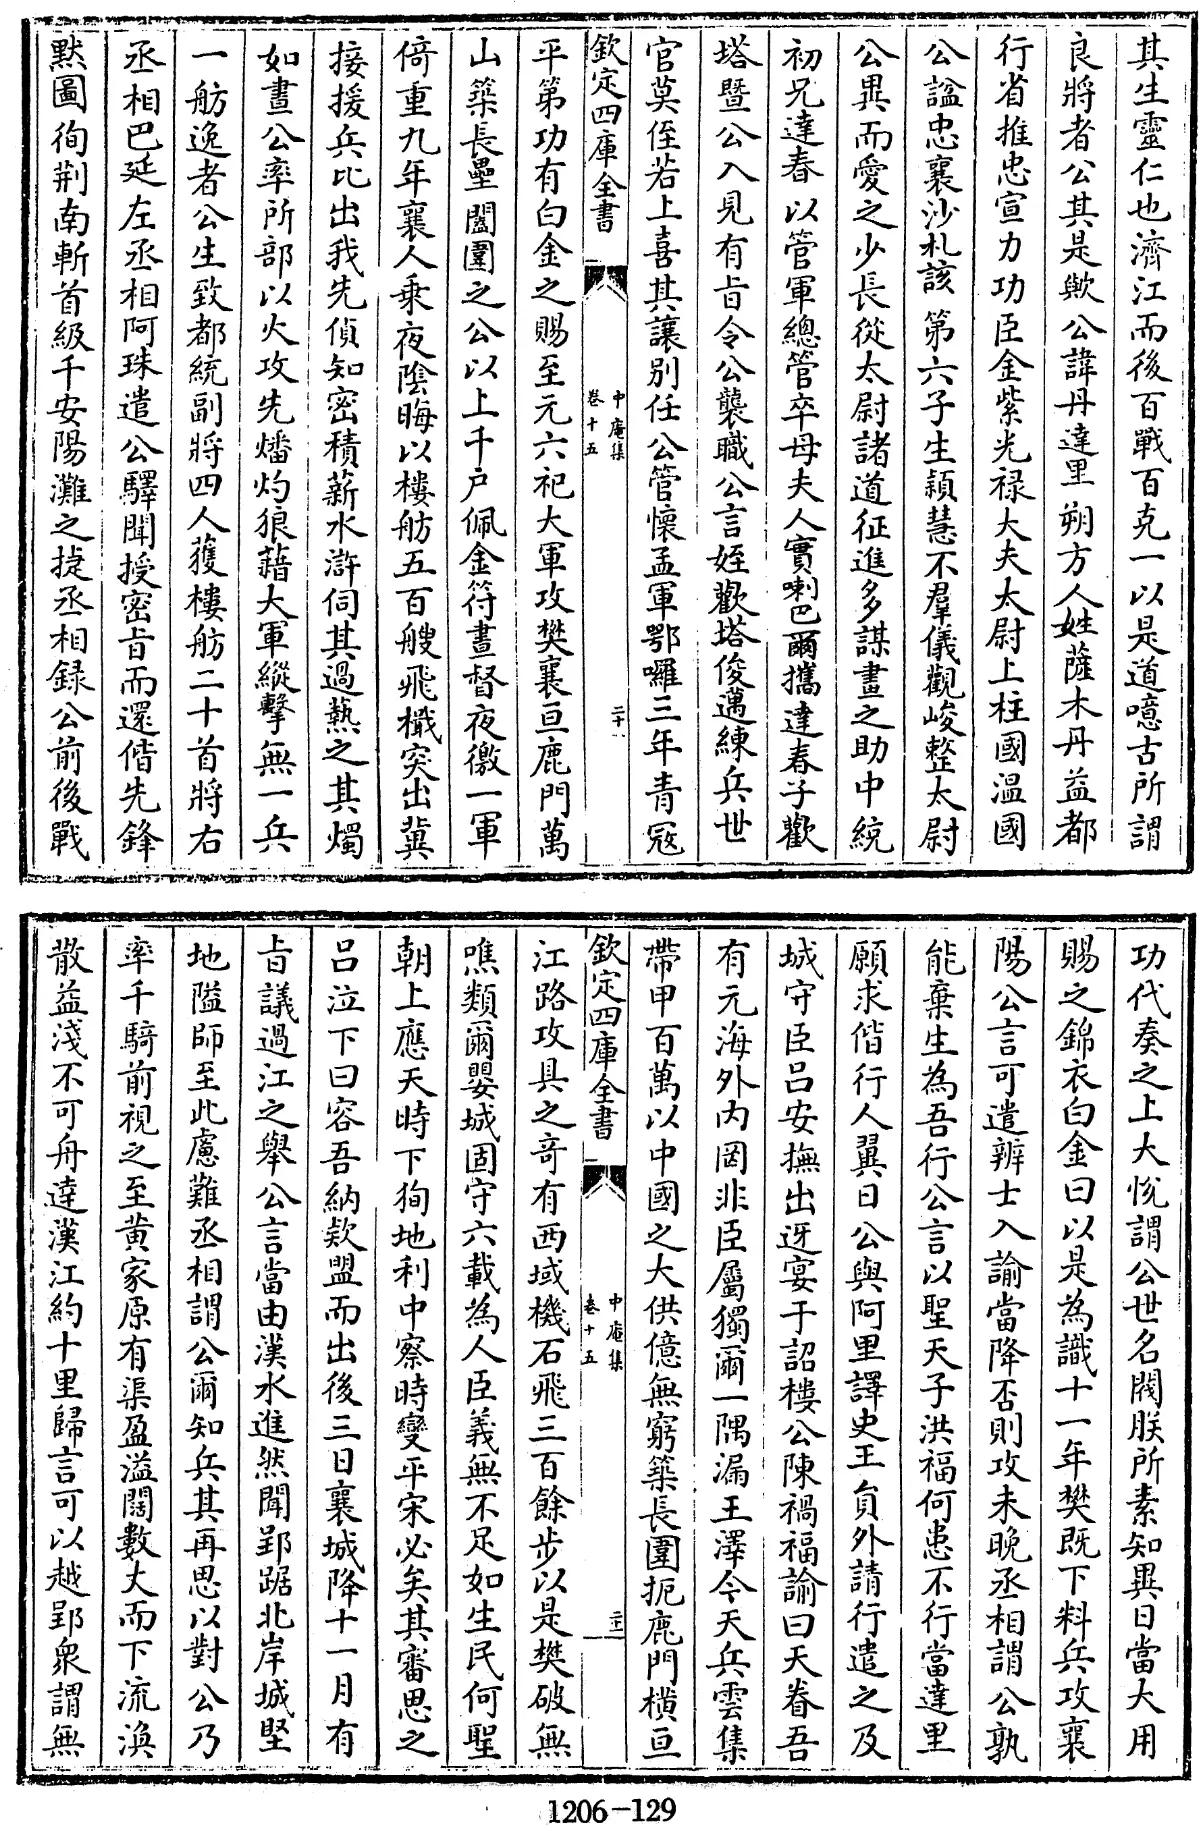 其生靈仁也濟江而後百戰百克一以是道噫古所謂
良將者公其是歟公諱丹達里朔方人姓薩木丹益都
行省推忠宣力功臣金紫光禄大夫太尉上柱國温國
公諡忠襄沙札該第六子生頴慧不羣儀觀峻整太尉
公異而愛之少長從太尉諸道征進多謀畫之助中統
初兄達春以管軍總管卒母夫人實喇巴爾攜達春子歡
塔暨公入見有㫖令公襲職公言姪歡塔俊邁練兵世
官莫侄若上喜其讓别任公管懷孟軍鄂囉三年青冦
欽定四庫全書
中庵集
卷十五
二十
平第功有白金之賜至元六祀大軍攻樊襄亘鹿門萬
山築長壘闔圍之公以上千户佩金符晝督夜徼一軍
倚重九年襄人乗夜陰晦以樓舫五百艘飛檝突出冀
接援兵比出我先偵知密積薪水滸伺其過熱之其燭
如晝公率所部以火攻先燔灼狼藉大軍縱擊無一兵
一舫逸者公生致都統副將四人獲樓舫二十首將右
丞相巴延左丞相阿珠遣公驛聞授密㫖而還偕先鋒
黙圖徇荆南斬首級千安陽灘之捷丞相録公前後戰
功代奏之上大悦謂公世名閥朕所素知異日當大用
賜之錦衣白金曰以是為識十一年樊既下料兵攻襄
陽公言可遣辨士入諭當降否則攻未晚丞相謂公孰
能棄生為吾行公言以聖天子洪福何患不行當達里
願求偕行人翼日公與阿里譯史王貟外請行遣之及
城守臣吕安撫出迓宴于詔樓公陳禍福諭曰天眷吾
有元海外内罔非臣屬獨爾一隅漏王澤今天兵雲集
帶甲百萬以中國之大供億無窮築長圍扼鹿門横亘
欽定四庫全書
中庵集
卷十五
二十一
江路攻具之竒有西域機石飛三百餘步以是樊破無
噍類爾嬰城固守六載為人臣義無不足如生民何聖
朝上應天時下狥地利中察時變平宋必矣其審思之
吕泣下曰容吾納欵盟而出後三日襄城降十一月有
㫖議過江之舉公言當由漢水進然聞郢踞北岸城堅
地隘師至此慮難丞相謂公爾知兵其再思以對公乃
率千騎前視之至黄家原有渠盈溢闊數丈而下流渙
散益淺不可舟達漢江約十里歸言可以越郢衆謂無
1206-129